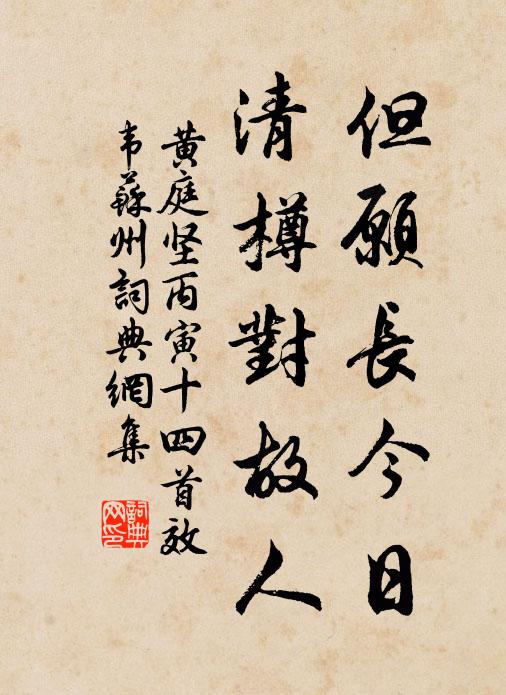 但願長今日
清樽對故人
黄庭坚丙寅十四首效
韦蘇州詞典網集
詞典
网印